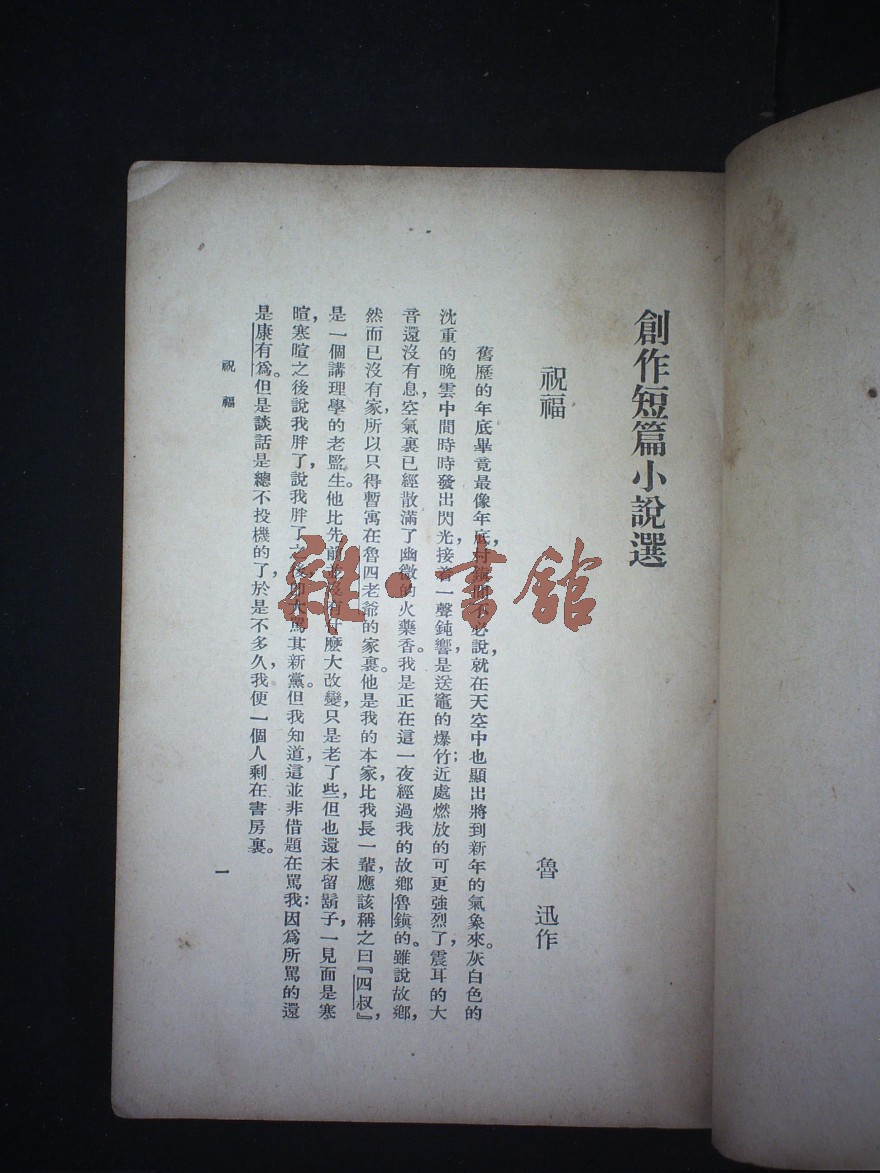 創作短篇小說選
祝福
魯迅作
舊歷的年底畢竟最像年底，村鎮上不必說，就在天空中也顯出將到新年的氣象來。灰白色的
沈重的晚雲中間時時發出閃光，接着一聲鈍響，是送竈的爆竹；近處燃放的可更強烈了，震耳的大
音還沒有息，空氣裏已經散滿了幽微的火藥香。我是正在這一夜經過我的故鄉魯鎮的。雖說故鄉，
然而已沒有家，所以只得暫寓在魯四老爺的家裏。他是我的本家，比我長一輩，應該稱之曰『四叔』，
是一個講理學的老監生。他比先前並沒有什麼大改變，只是老了些，但也還未留鬍子，一見面是寒
暄，寒暄之後說我胖了，說我胖了之後即大罵其新黨。但我知道，這並非借題在罵我：因為所罵的還
是康有為。但是談話是總不投機的了，於是不多久，我便一個人剩在書房裏。
祝福
一
雜·書館